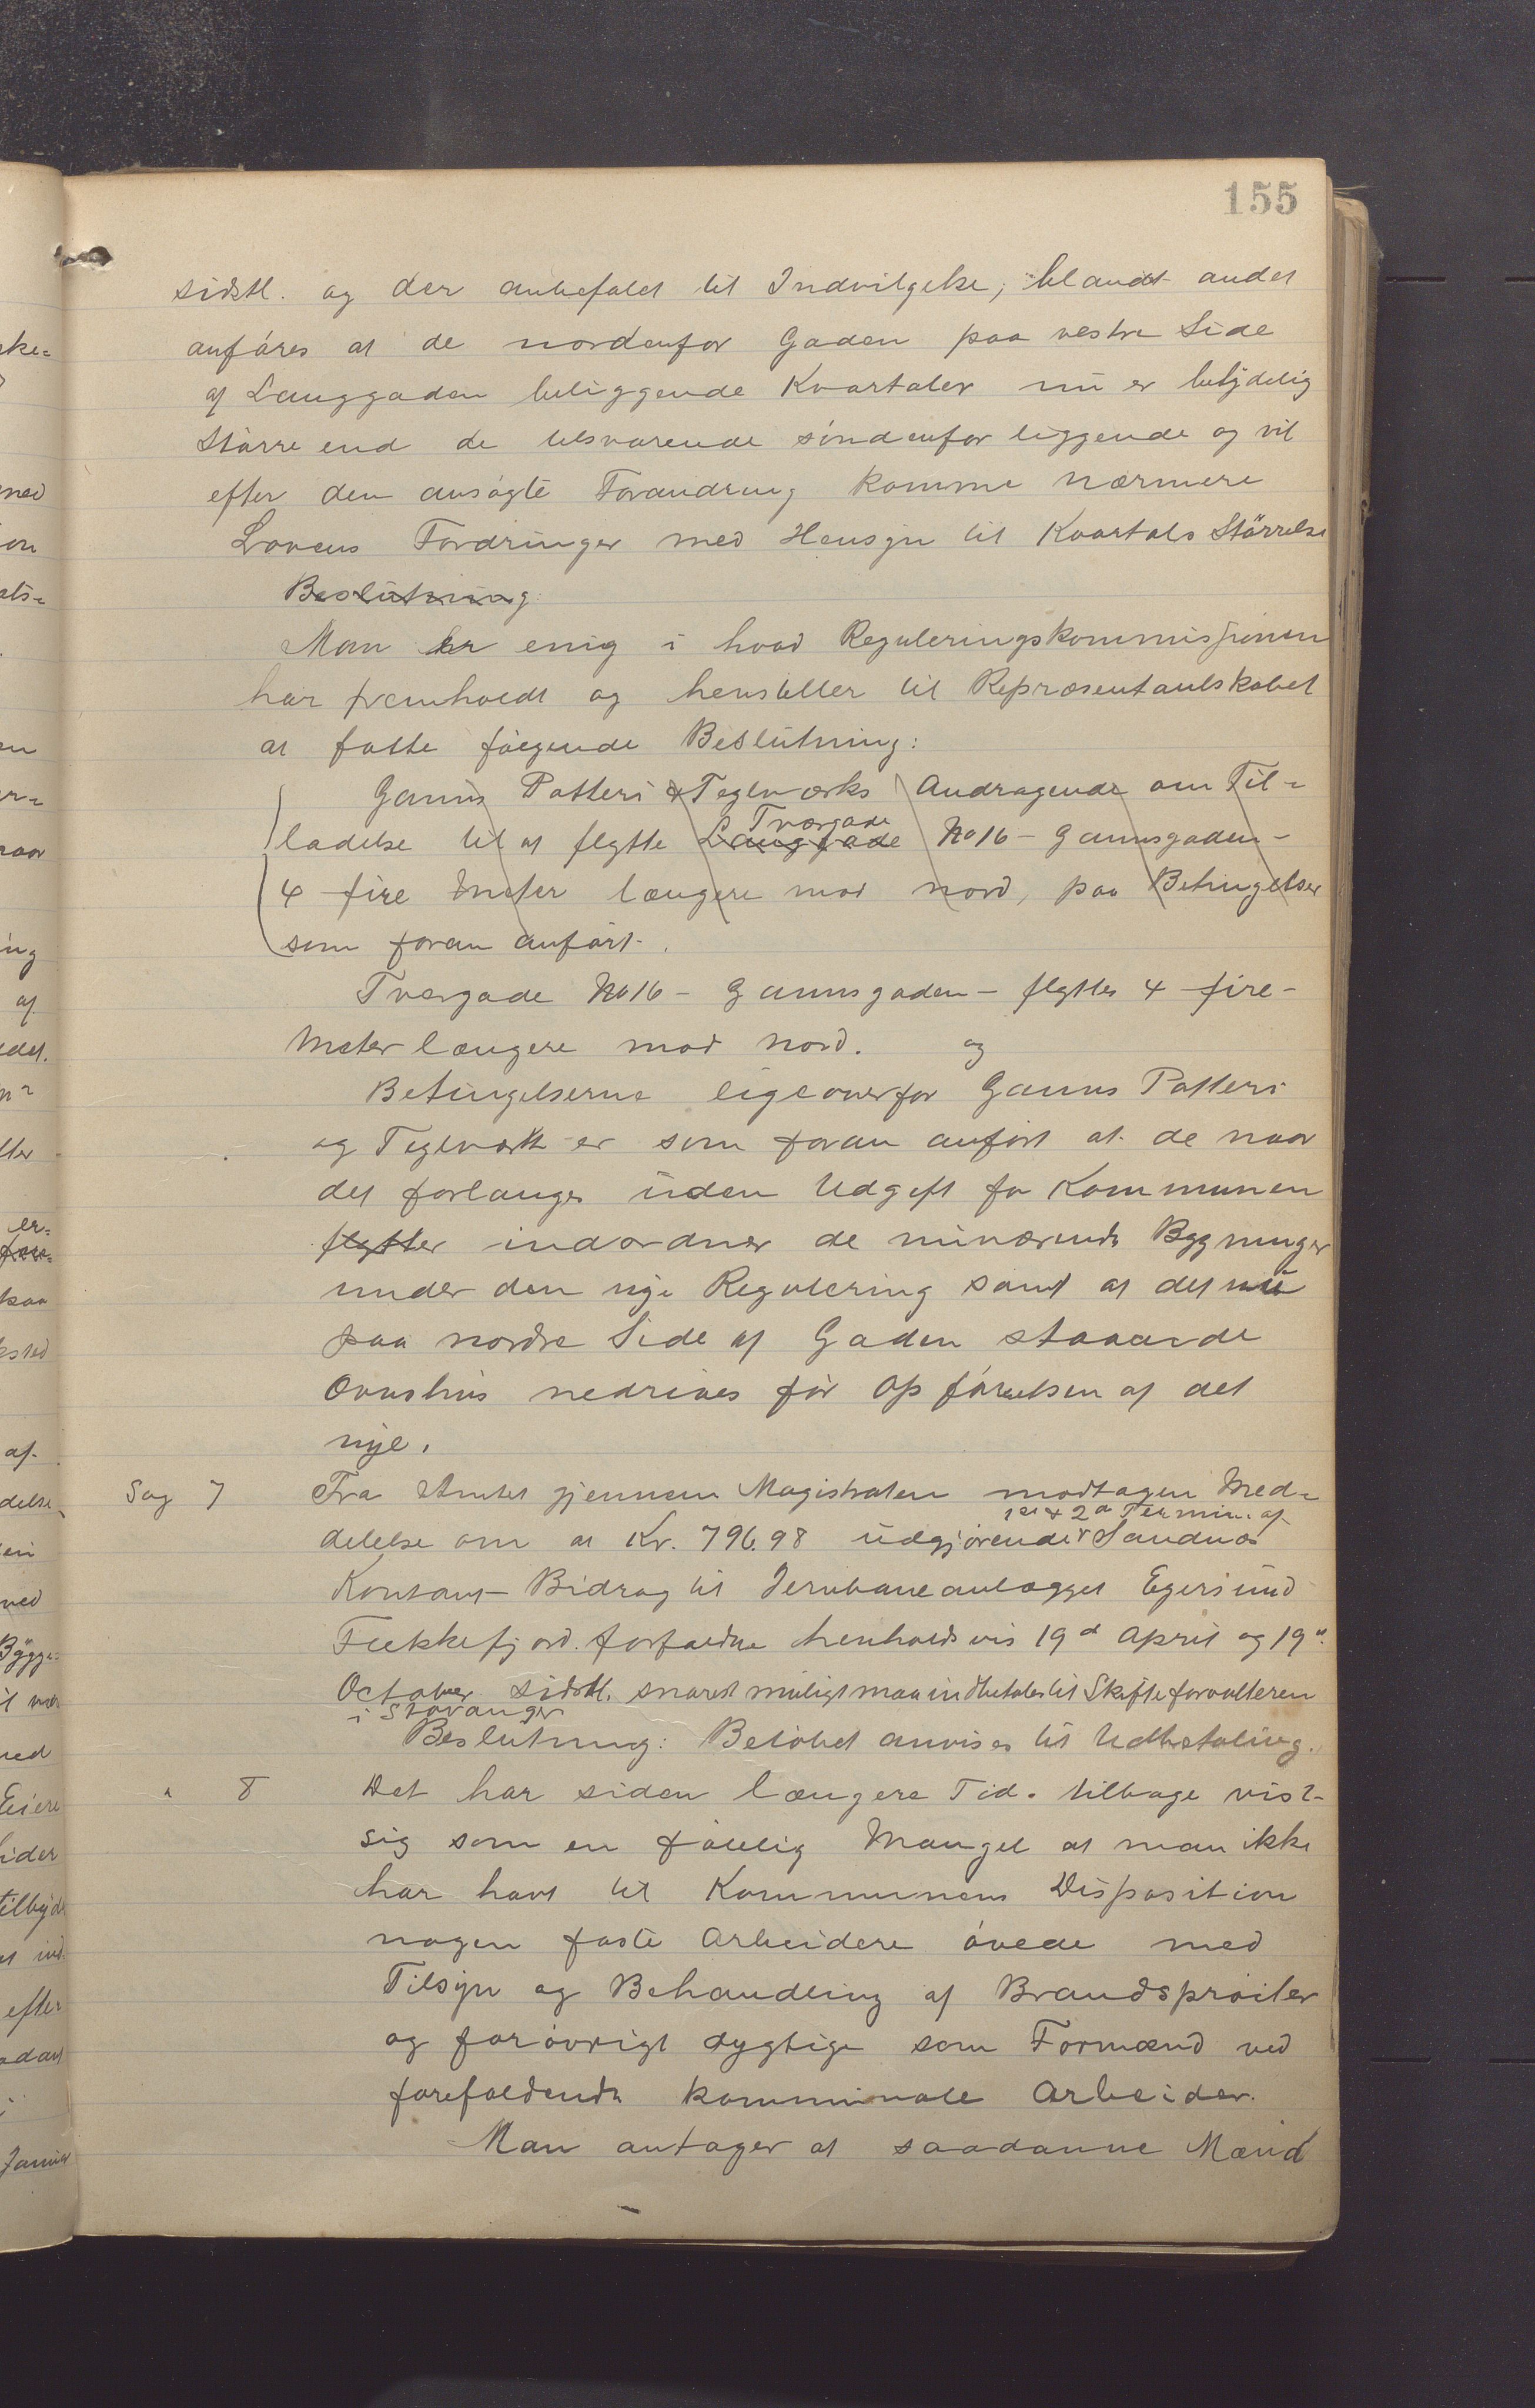 155
sidstl. og der anbefalet til Indvilgelse, blandt andet
anføres at de nordenfor Gaden paa vestre Side
af Langgaden beliggende Kvartaler nu er betydelig
større end de tilsvarende søndenfor liggende og vil
efter den ansøgte Forandring komme nærmere
Lovens Fordringer med Hensyn til Kvartals Størrelse
Beslutning:
Man er enig i hvad Reguleringskommissjonen
har fremholdt og henstiller til Repræsentantskabet
at fatte følgende Beslutning:
Ganns Potteri & Teglværks Andragende om Til-
Tværgade
ladelse til at flytte Langgade No 16 - Gannsgaden -
4 fire Meter længere mod nord, paa Betingelser
som foran anført.
Tværgade No 16 - Gannsgaden - flyttes 4 - fire -
Meter længere mod nord. og
Betingelserne ligeoverfor Ganns Potteri
og Teglværk er som foran anført at de naar
det forlanges uden Udgift for Kommunen
flytter indordner de nuværende Bygninger
under den nye Regulering samt at det nu
paa nordre Side af Gaden staaende
Ovnshus nedrives før Opførelsen af det
nye.
Sag 7 Fra Amtet gjennem Magistraten modtagen Med-
1ste & 2den Termin. af
delelse om at Kr. 796.98 udgjørende Sandnæs
Kontant-Bidrag til Jernbaneanlægget Egersund
Flekkefjord. forfaldne henholdsvis 19d April og 19d
October sidstl. snarest muligt maa indbetales til Skifteforvalteren
i Stavanger
Beslutning: Beløbet anvises til Udbetaling.
" 8 Det har siden længere Tid. tilbage vist
sig som en følelig Mangel at man ikke
har havt til Kommunens Disposition
nogen faste Arbeidere øvede med
Tilsyn og Behandling af Brandsprøiter
og forøvrigt dygtige som Formænd ved
forefaldende kommunale Arbeider.
Man antager at saadanne Mænd